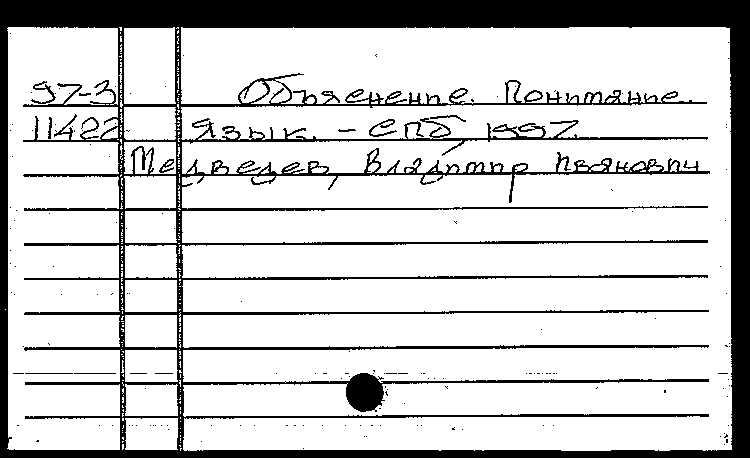 97-3 Объяснение. Понимание.
11422 Язык. - СПб, 1997.
Медведев, Владимир Иванович